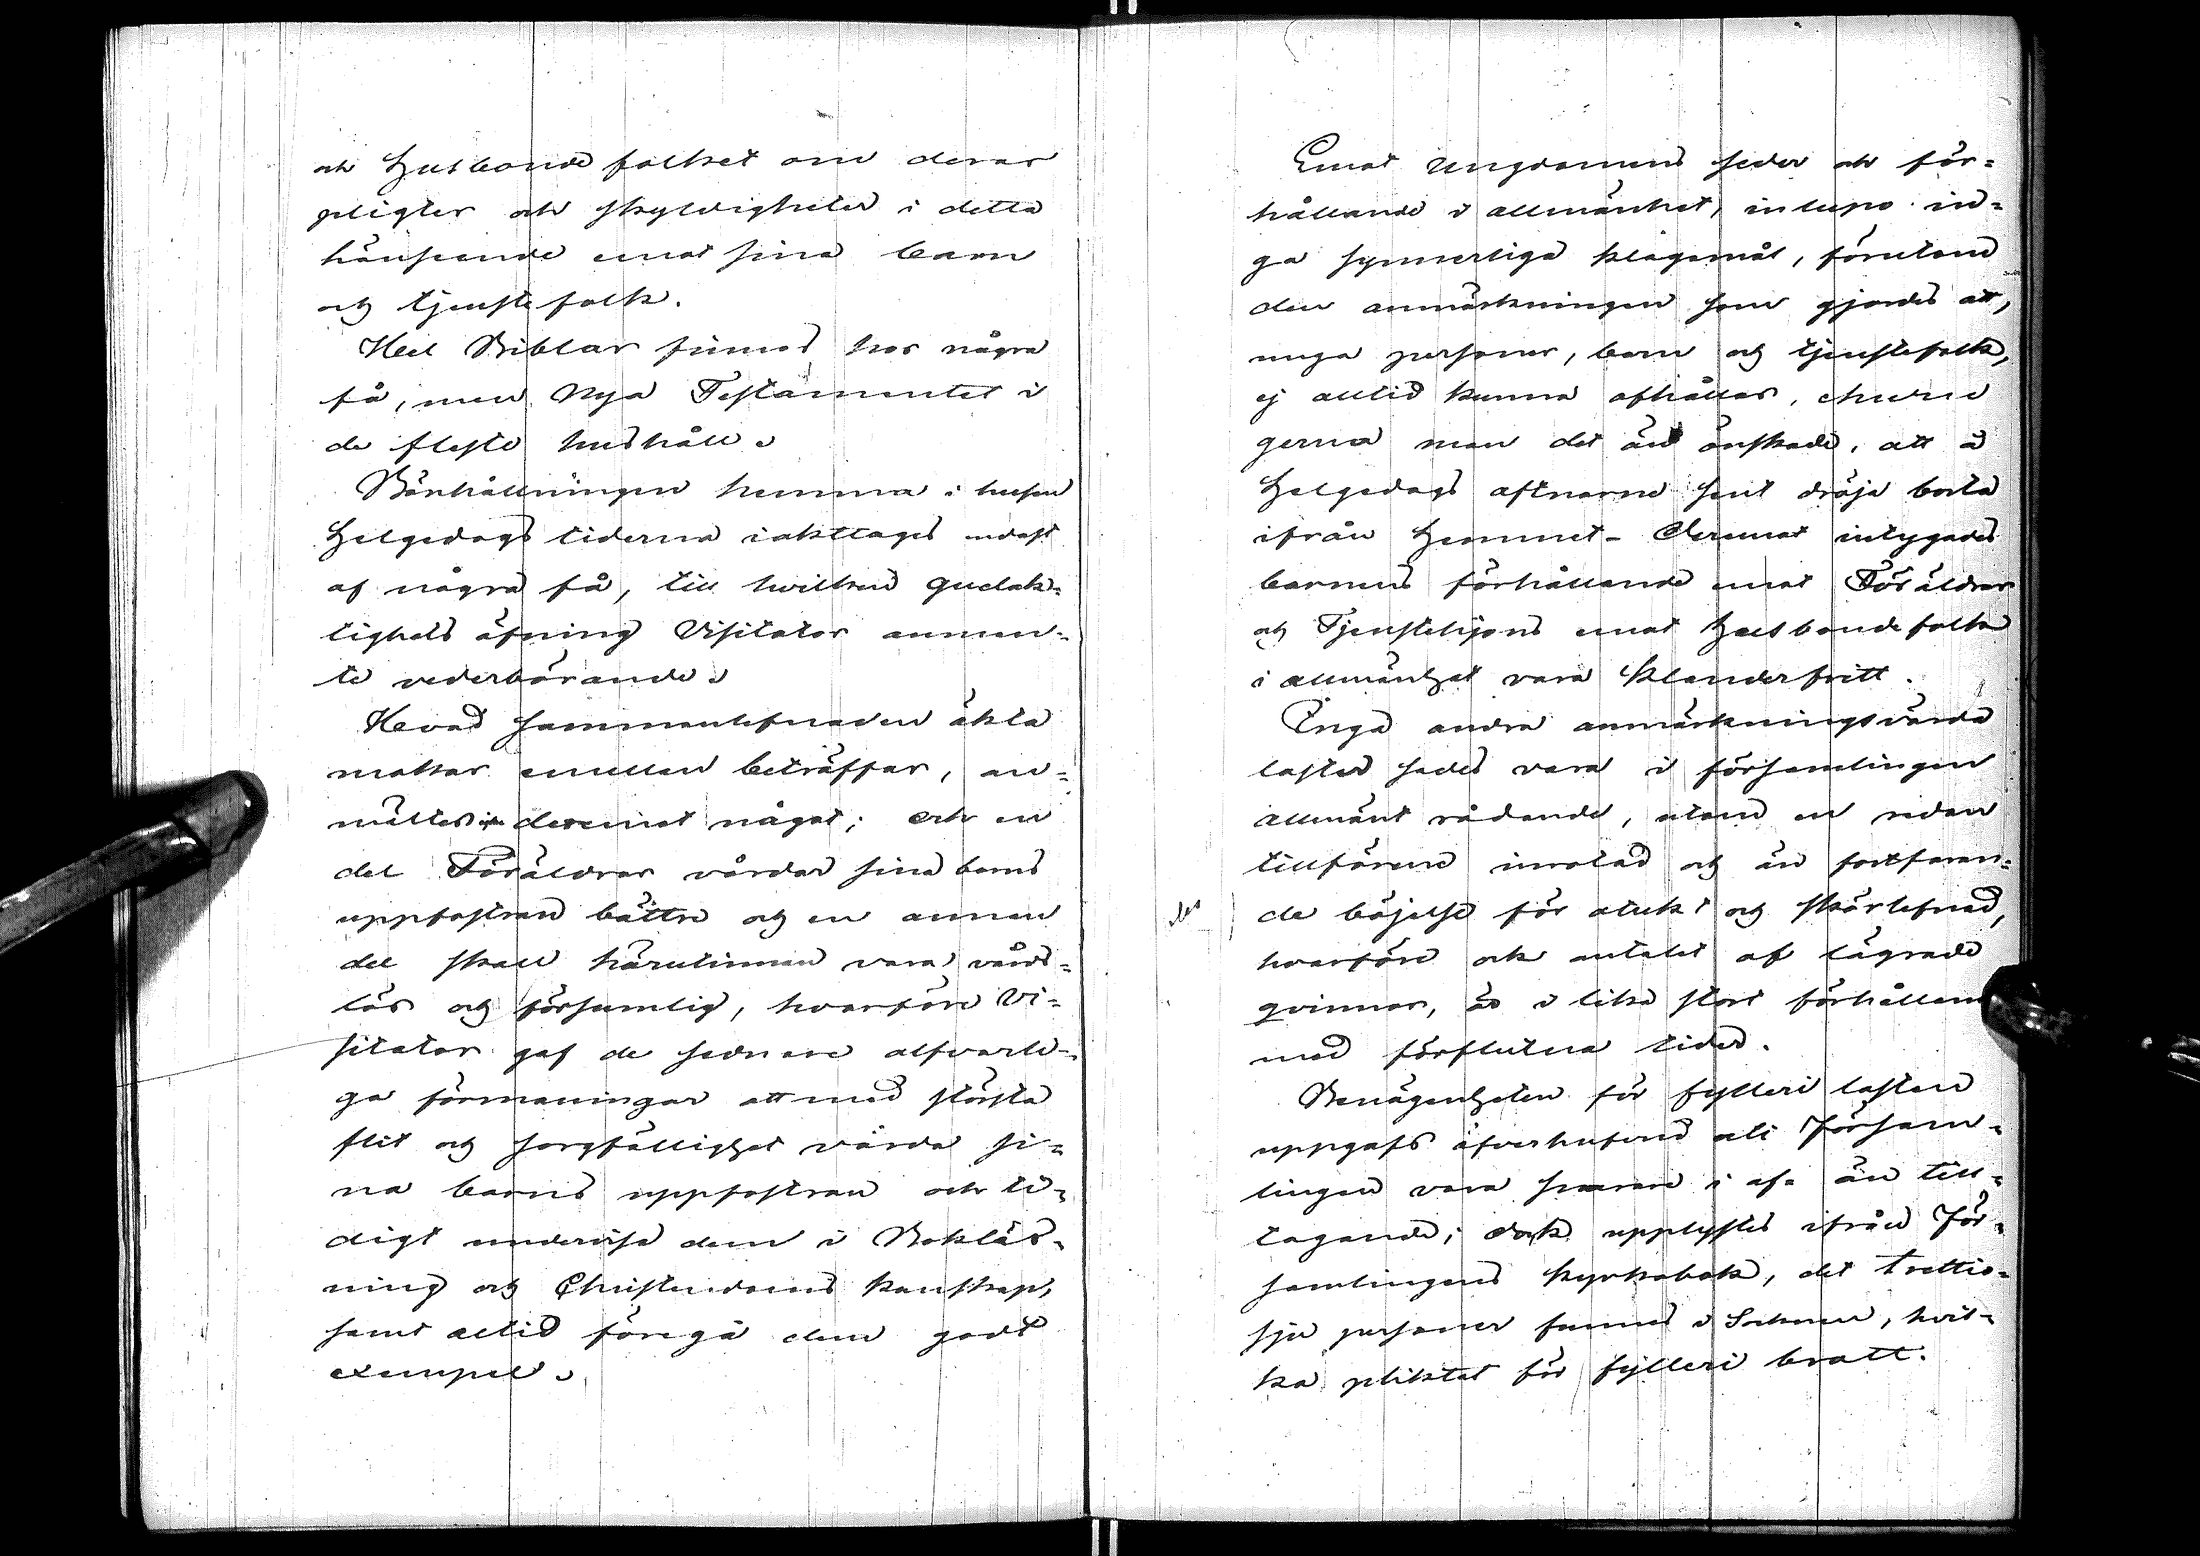 och Husbonde folket om deras
pligter och skyldigheter i detta
hänseende emot sina barn
och tjenstefolk.
Hel Biblar finnes hos några
få, men Nya Testamentet i
de fleste hushåll.
Bönhållningen hemma i husen
Helgedags tiderna iakttages endast
af några få, till hvilken gudak-
tighets öfning Visitator anmen-
te vederbörande.
Hvad sammanlefnaden äkta
makar emellan beträffar, an-
mältes deremot något; och en
del Föräldrar vårdar sina barns
uppfostran bättre och en annan
del skall härutinnan vara vårds-
lös och försumlig, hvarföre Vi-
sitator gaf de sednare alfvarli-
ga förmaningar att med största
flit och sorgfällighet vårda si-
na barns uppfostran och ti-
digt undervisa dem i Bokläs-
ning och Christendoms kunskap,
samt altid föregå dem godt
exempel.
Emot Ungdomens seder och för-
hållande i allmänhet, inlupo in-
ga synnerliga klagomål, förutom
den anmärkningen som gjordes att,
unga personer, barn och tjenstefolk,
ej alltid kunna afhållas, ehuru
gerna man det än önskade, att å
Helgedags aftnarne sent dröja borta
ifrån Hemmet - Deremot intygades
barnens förhållande emot Föräldrar
och Tjenstehjons emot Husbondefolk
i allmänhet vara klanderfritt.
Inga andra anmärkningsvärda
laster sades vara i församlingen
allmänt rådande, utom en redan
tillförene inrotad och än fortfaran-
de böjelse för otukt och skörlefnad,
hvarföre ock antalet af lägrade
qvinnor, är i lika stort förhållan
med förflutna tider.
Benägenheten för fylleri lasten
uppgafs öfverhufvud uti Försam-
lingen vara snarare i af- än till-
tagande; dock upplystes ifrån För-
samlingens kyrkobok, det trettio-
sju personer funnes i Socknen, hvil-
ka pliktat för fylleri brott.